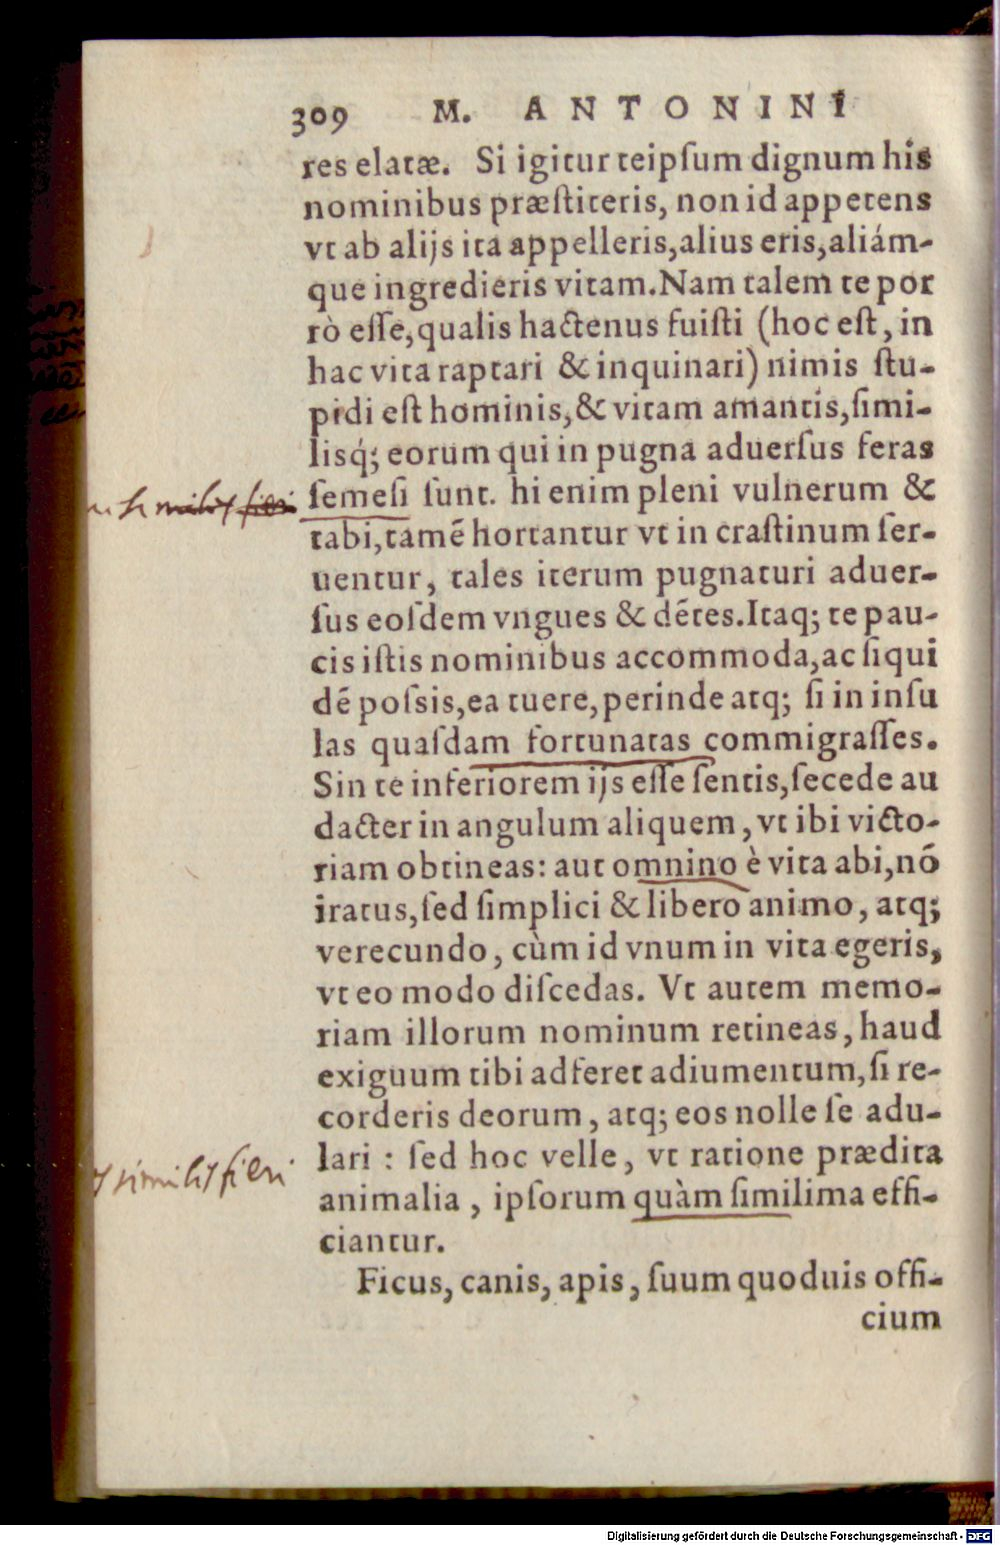 309 M. ANTONINI
res elatæ. Si igitur teipſum dignum his
nominibus præſtiteris, non id appetens
vt ab alijs ita appelleris, alius eris, aliám-
que ingredieris vitam. Nam talem te por
rò eſſe, qualis hactenus fuiſti (hoc eſt, in
hac vita raptari & inquinari) nimis ſtu-
pidi eſt hominis, & vitam amantis, ſimi-
lisq́; eorum qui in pugna aduerſus feras
ſemeſi ſunt. hi enim pleni vulnerum &
tabi, tamẽ hortantur vt in craſtinum ſer-
uentur, tales iterum pugnaturi aduer-
ſus eoſdem vngues & dẽtes. Itaq; te pau-
cis iſtis nominibus accommoda, ac ſiqui
dẽ poſsis, ea tuere, perinde atq; ſi in inſu
las quaſdam fortunatas commigraſſes.
Sin te inferiorem ijs eſſe ſentis, ſecede au
dacter in angulum aliquem, vt ibi victo-
riam obtineas: aut omnino è vita abi, nõ
iratus, ſed ſimplici & libero animo, atq;
verecundo, cùm id vnum in vita egeris,
vt eo modo diſcedas. Vt autem memo-
riam illorum nominum retineas, haud
exiguum tibi adferet adiumentum, ſi re-
corderis deorum, atq; eos nolle ſe adu-
lari : ſed hoc velle, vt ratione prædita
similis fieri
animalia, ipſorum quàm ſimilima effi-
ciantur.
Ficus, canis, apis, ſuum quoduis offi-
cium
Digitalisierung gefördert durch die Deutsche Forschungsgemeinschaft - DFG